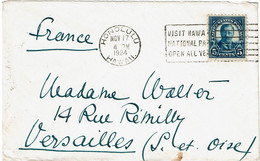 France
HONOLULU
NOV 17
4 PM
1924
HAWAII
VISIT HAWAII
NATIONAL PA
OPEN ALL YE
5 5
Madame Walter
14 Rue Rémilly
Versailles (S. et Oise)